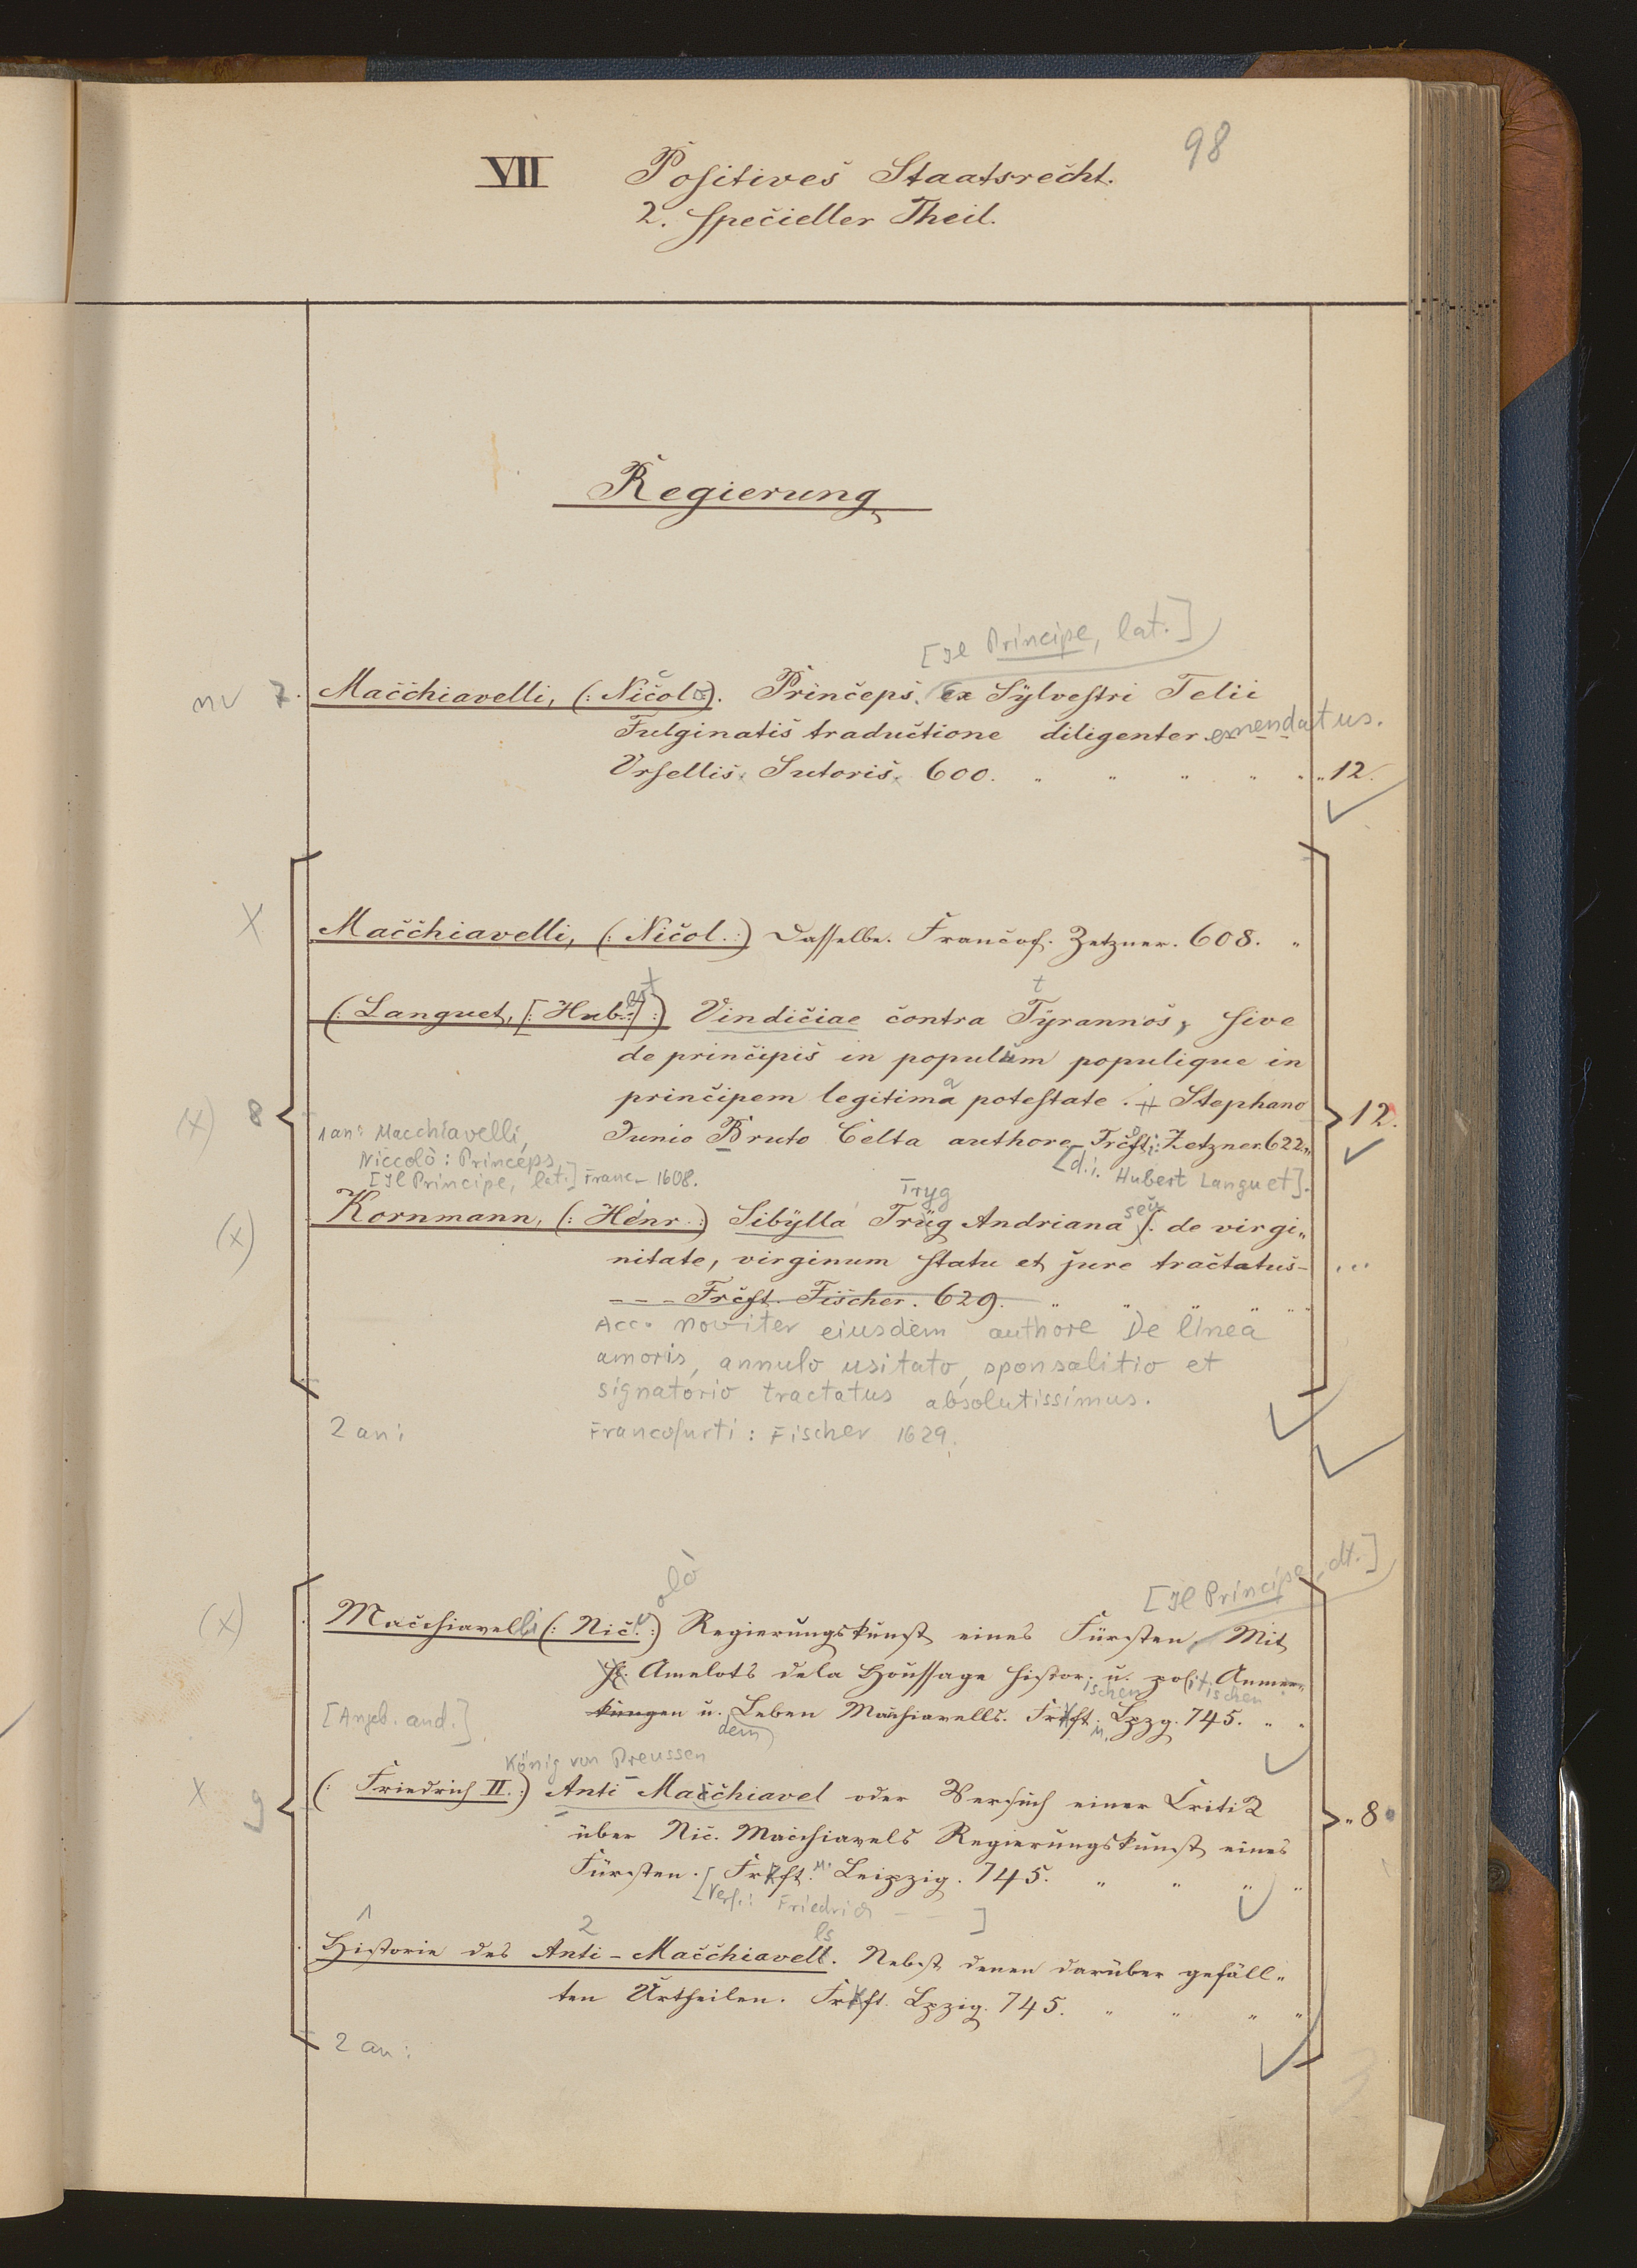 98
VII Positives Staatsrecht.
2. Specieller Theil.
Regierung
[Il Principe, lat.]
nv 7. Macchiavelli, (: Nicolo:). Princeps. ex Sylvestri Telii
Fulginatis traductione diligenter emendatus.
Ursellis Sutoris 600. " " " " " " 12.
X Macchiavelli, (: Nicol. :) Dasselbe. Francof. Zetzner. 608. "
(: Languet, [: Hub. :] :) Vindiciae contra Tyrannos, sive
de principis in populum populique in
(x) 8 principem legitima potestate . Stephano 12.
1 an: Macchiavelli, Junio Bruto Celta authore Frcft. Zetzner. 622. "
Niccolò: Princeps [d.i. Hubert Languet].
[Il Principe, lat.] Franc. 1608.
Tryg seu
(x) Kornmann, (: Henr. :) Sibylla Trüg Andriana s. de virgi„
nitate, virginum statu et jure tractatus - ...
--- Frcft. Fischer. 629. " " " " "
Acc. noviter eiusdem authore De linea
amoris, annulo usitato, sponsalitio et
signatorio tractatus absolutissimus.
2 an: Francofurti: Fischer 1629.
olò [Il Principe, dt.]
(x) Macchiavelli (: Nic. :) Regierungskunst eines Fürsten. Mit
H. Amelots dela Houssage histor. u. polit. Anmer„
ischen ischen
[Angeb. and.] kungen u. Leben Macchiavells. Frkft. u. Lpzg. 745. " "
dem
König von Preussen
X 9 (: Friedrich II. :) Anti Macchiavel oder Versuch einer Critik
über Nic. Macchiavels Regierungskunst eines " 8
Fürsten. Frkft. u. Leipzig. 745. " " " "
[Verf.: Friedrich — — ]
1 2 ls
Historie des Anti-Macchiavell. Nebst denen darüber gefäll„
ten Urtheilen. Frkft. Lpzig. 745. " " " "
2 an: